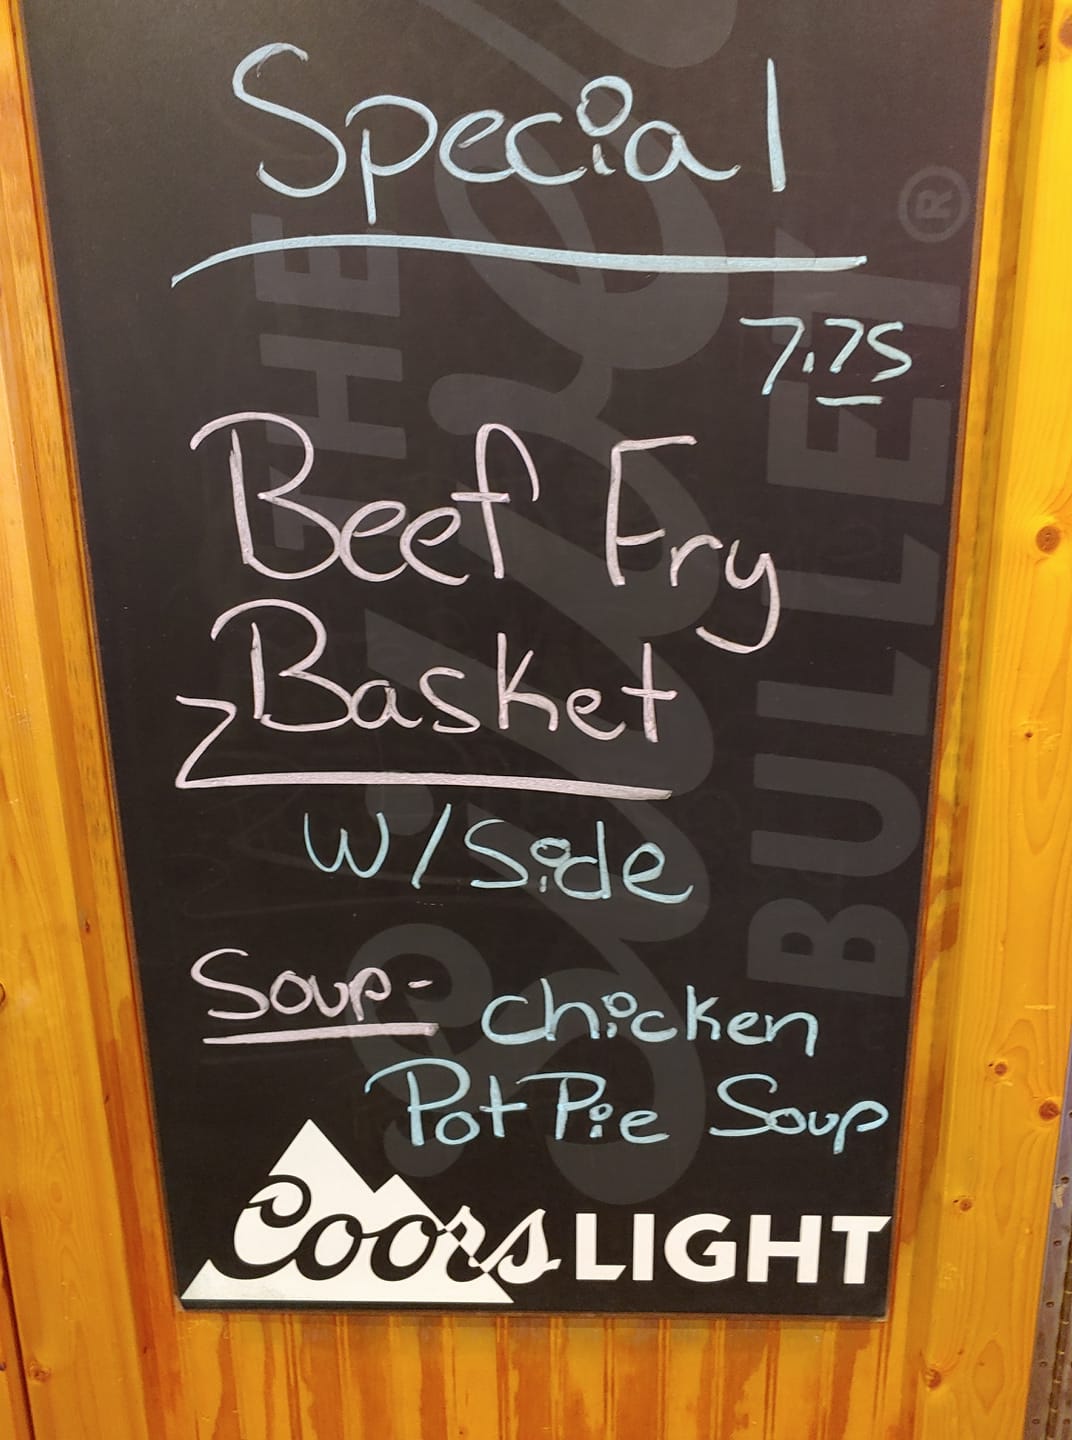 Special
7.75
Beef Fry
Basket
W/Side
Soup- Chicken
Pot Pie Soup
Coors LIGHT
THE
Silver
BULLET®